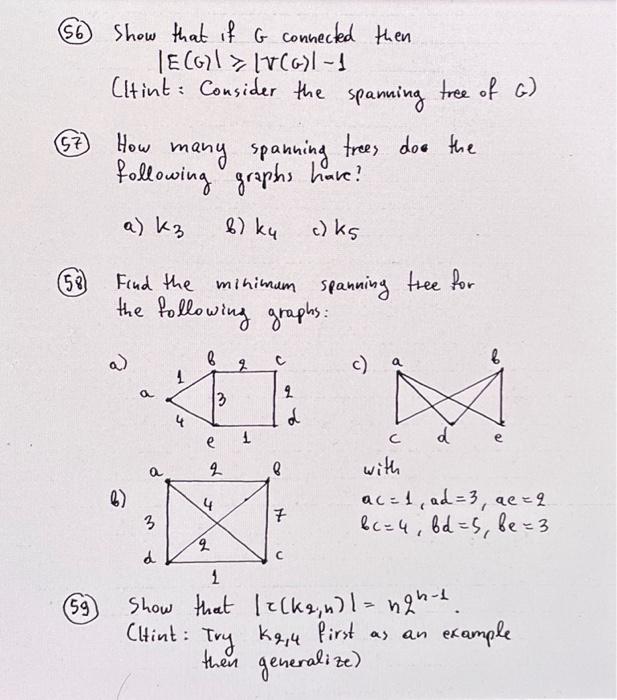 56 Show that if G connected then
|E(G)| ≥ |V(G)| - 1
(Hint: Consider the spanning tree of G)
57 How many spanning trees does the
following graphs have?
a) K3 b) K4 c) K5
58 Find the minimum spanning tree for
the following graphs:
a)
b 2 c
1
a 3 2
4 d
e 1
c)
a b
c d e
with
ac = 1, ad = 3, ae = 2
bc = 4, bd = 5, be = 3
b)
a 2 b
4
3 7
2
d c
1
59 Show that |τ(K2,n)| = n2^{n-1}.
(Hint: Try K2,4 first as an example
then generalize)